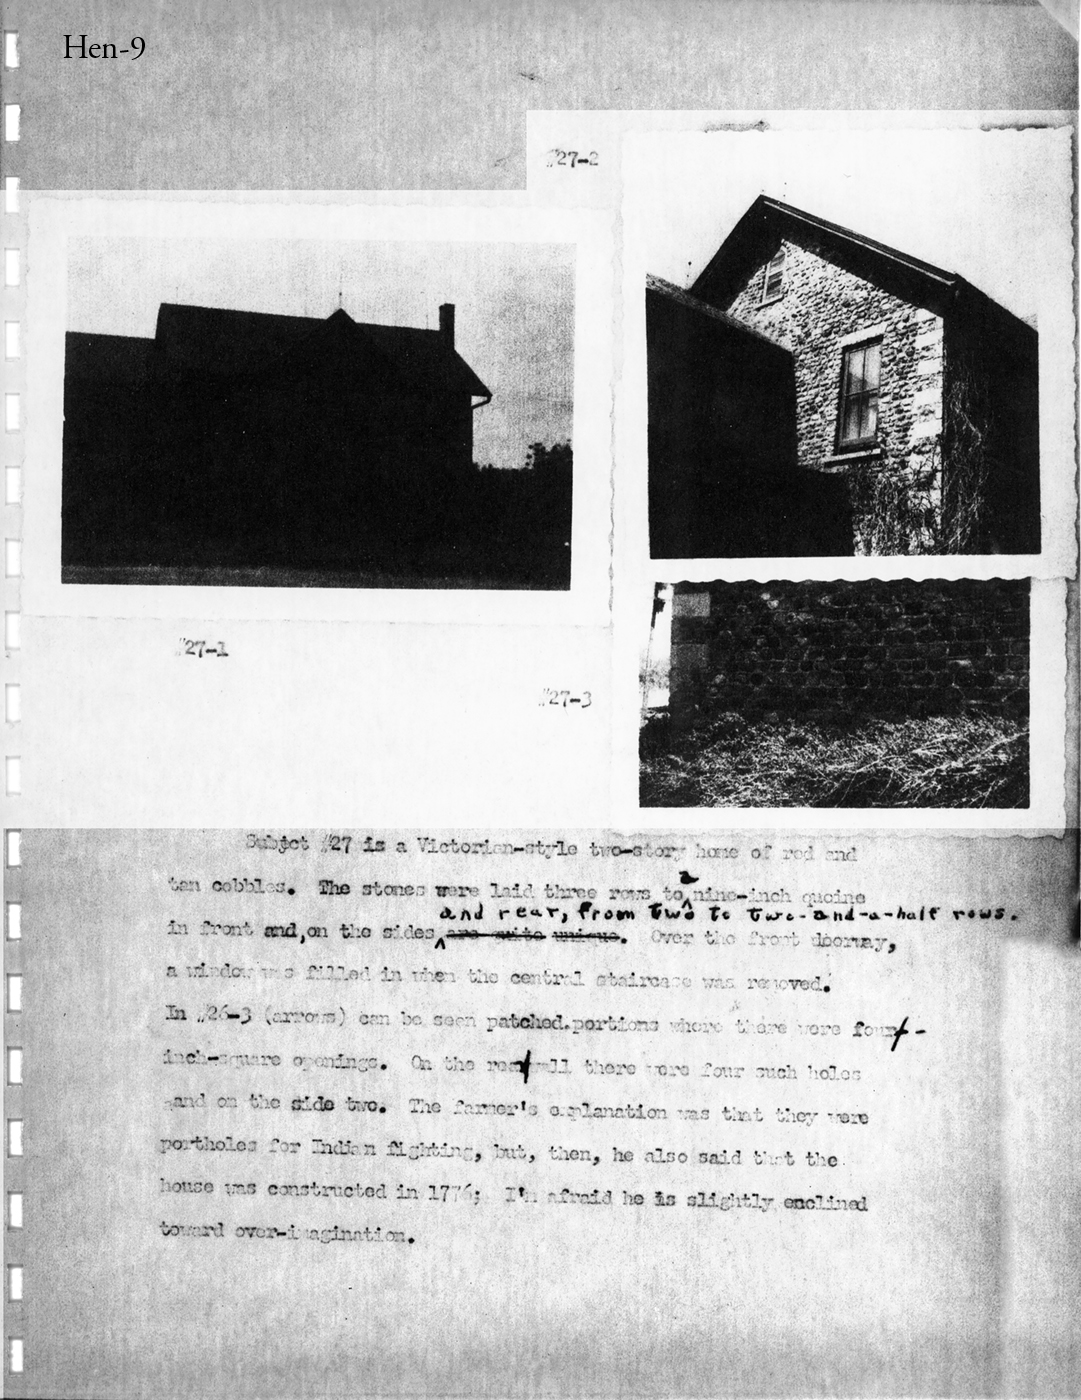 Hen-9
#27-2
#27-1
#27-3
Subject #27 is a Victorian-style two-story home of red and
tan cobbles. The stones were laid three rows to a nine-inch quoine
and rear, from two to two-and-a-half rows.
in front and, on the sides are quite unique. Over the front doorway,
a window was filled in when the central staircase was removed.
In #26-3 (arrows) can be seen patched portions where there were four-
inch-square openings. On the rear wall there were four such holes
and on the side two. The farmer's explanation was that they were
portholes for Indian fighting, but, then, he also said that the
house was constructed in 1776; I'm afraid he is slightly enclined
toward over-imagination.